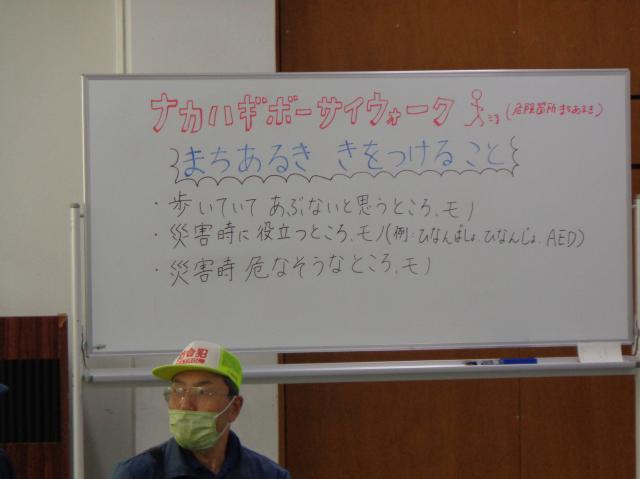 ナカハギボーサイウォーク (危険箇所まちあるき)
まちあるき きをつけること
・歩いていて あぶないと思うところ、モノ
・災害時に役立つところ、モノ(例:ひなんばしょ、ひなんじょ、AED)
・災害時 危なそうなところ、モノ
PATROL